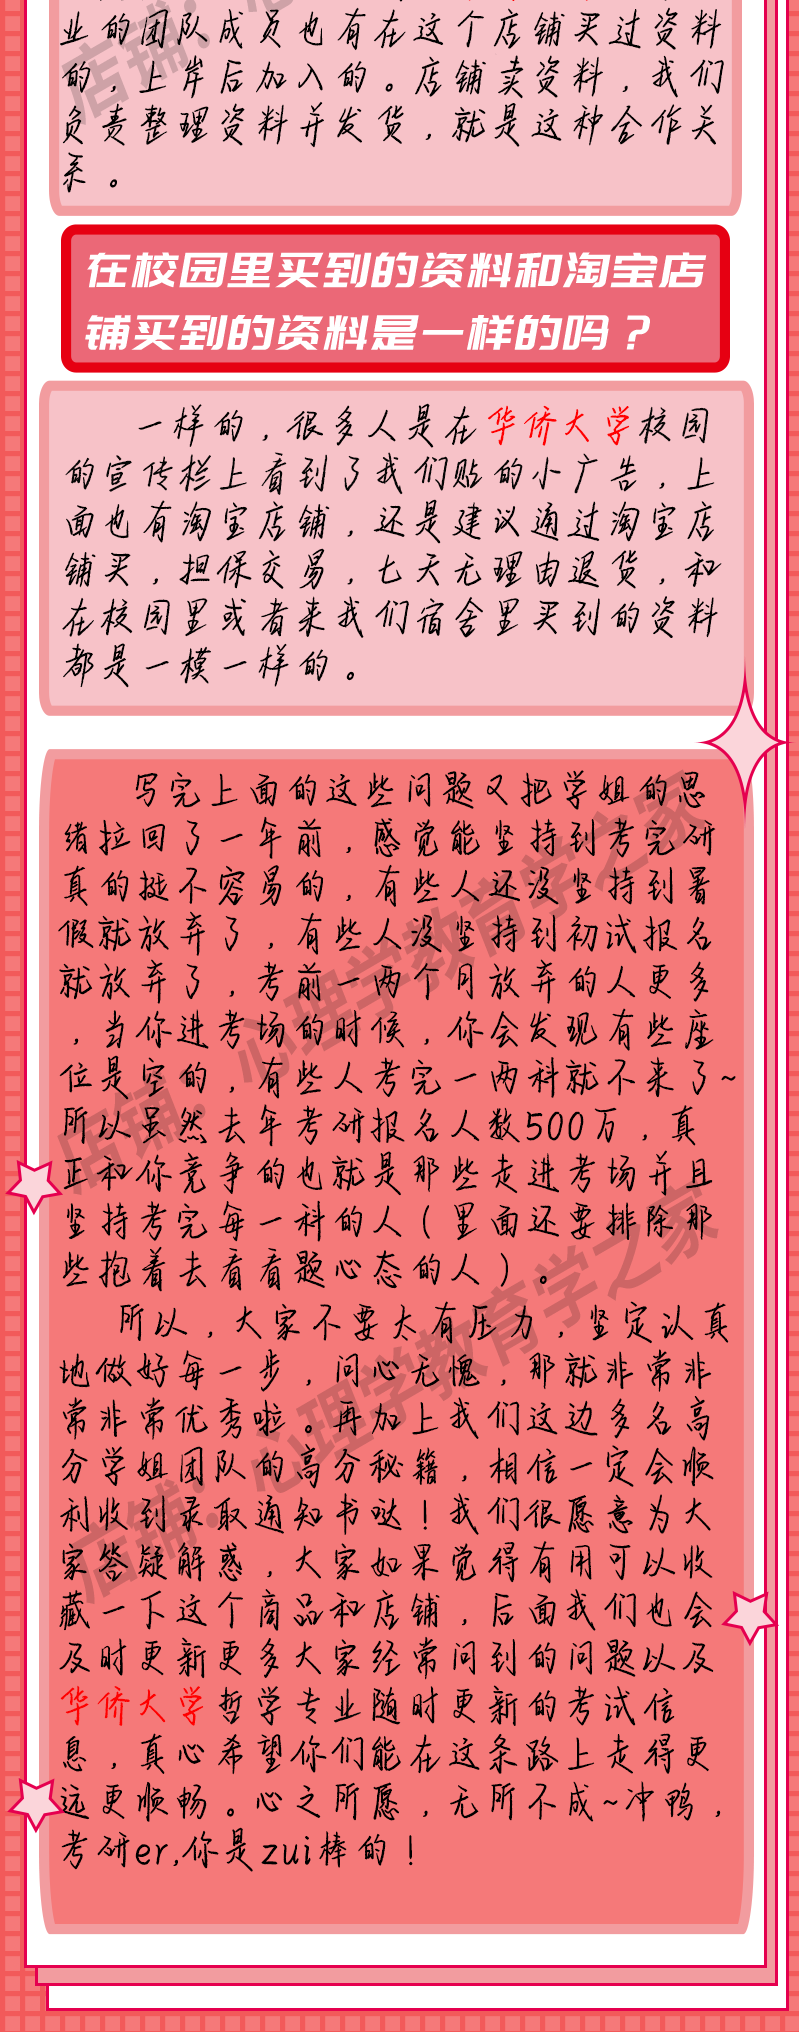 业的团队成员也有在这个店铺买过资料
的，上岸后加入的。店铺卖资料，我们
负责整理资料并发货，就是这种合作关
系。
在校园里买到的资料和淘宝店
铺买到的资料是一样的吗？
一样的，很多人是在华侨大学校园
的宣传栏上看到了我们贴的小广告，上
面也有淘宝店铺，还是建议通过淘宝店
铺买，担保交易，七天无理由退货，和
在校园里或者来我们宿舍里买到的资料
都是一模一样的。
写完上面的这些问题又把学姐的思
绪拉回了一年前，感觉能坚持到考完研
真的挺不容易的，有些人还没坚持到暑
假就放弃了，有些人没坚持到初试报名
就放弃了，考前一两个月放弃的人更多
，当你进考场的时候，你会发现有些座
位是空的，有些人考完一两科就不来了~
所以虽然去年考研报名人数500万，真
正和你竞争的也就是那些走进考场并且
坚持考完每一科的人（里面还要排除那
些抱着去看看题心态的人）。
所以，大家不要太有压力，坚定认真
地做好每一步，问心无愧，那就非常非
常非常优秀啦。再加上我们这边多名高
分学姐团队的高分秘籍，相信一定会顺
利收到录取通知书哒！我们很愿意为大
家答疑解惑，大家如果觉得有用可以收
藏一下这个商品和店铺，后面我们也会
及时更新更多大家经常问到的问题以及
华侨大学哲学专业随时更新的考试信
息，真心希望你们能在这条路上走得更
远更顺畅。心之所愿，无所不成~冲鸭，
考研er,你是zui棒的！
店铺：心理学教育学之家
店铺：心理学教育学之家